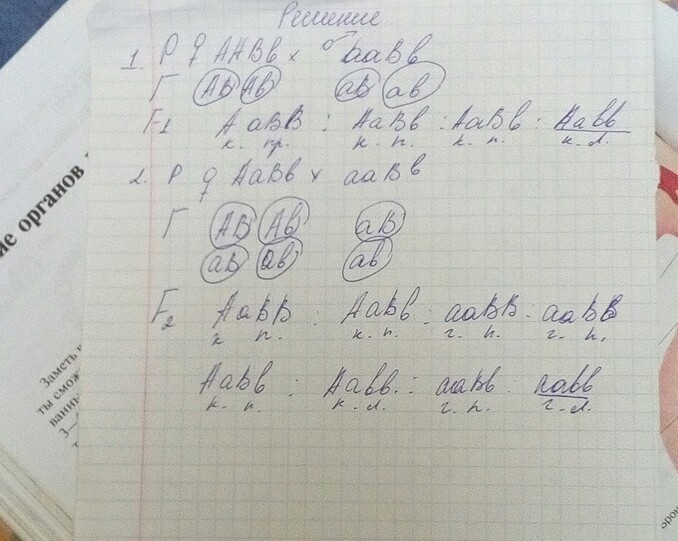 Решение
1. P ♀ AABb x ♂ aaBb
Г AB Ab aB ab
F1 AaBB : AaBb : AaBb : Aabb
к. пр. к. п. к. п. к. л.
2. P ♀ AaBb x aaBb
Г AB Ab aB
aB ab ab
F2 AaBB : AaBb : aaBB : aaBB
к. п. к. п. г. п. г. п.
AaBb : Aabb : aaBb : aabb
к. п. к. л. г. п. г. л.
ие органов
Заметь
ты сможе
ванны
3—